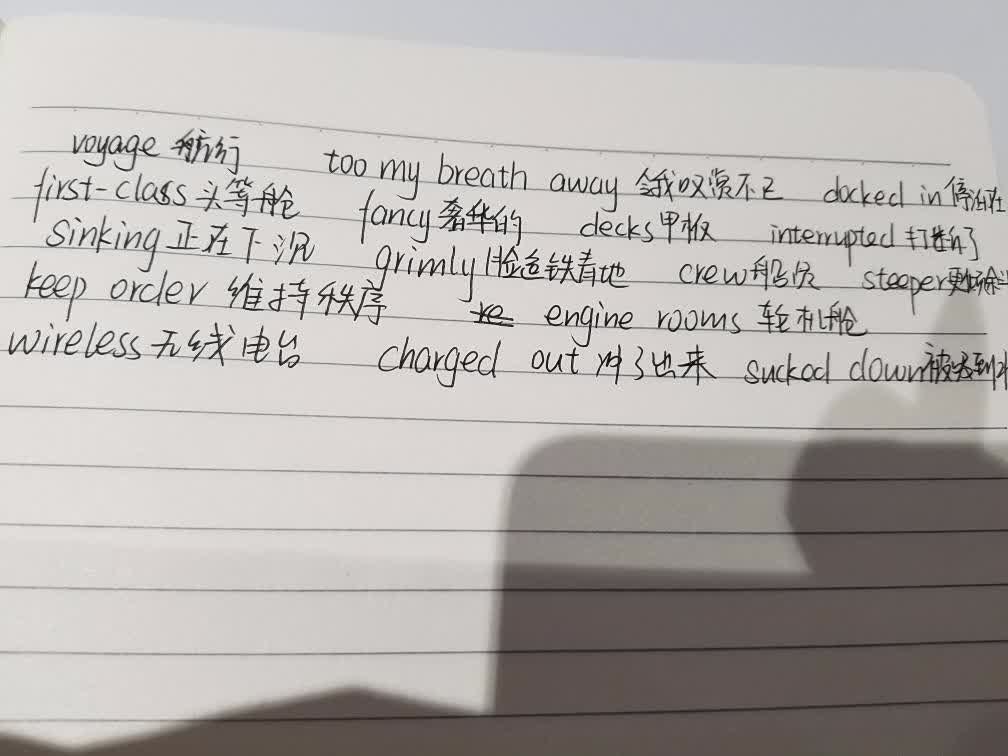 voyage 航行 too my breath away 令我叹演不已 docked in 停泊在
first-class 头等舱 fancy 奢华的 decks 甲板 interrupted 打断了
sinking 正在下沉 grimly 脸色铁青地 crew 船员 steeper
keep order 维持秩序 engine rooms 轮机舱
wireless 无线电台 charged out 冲了出来 sucked down